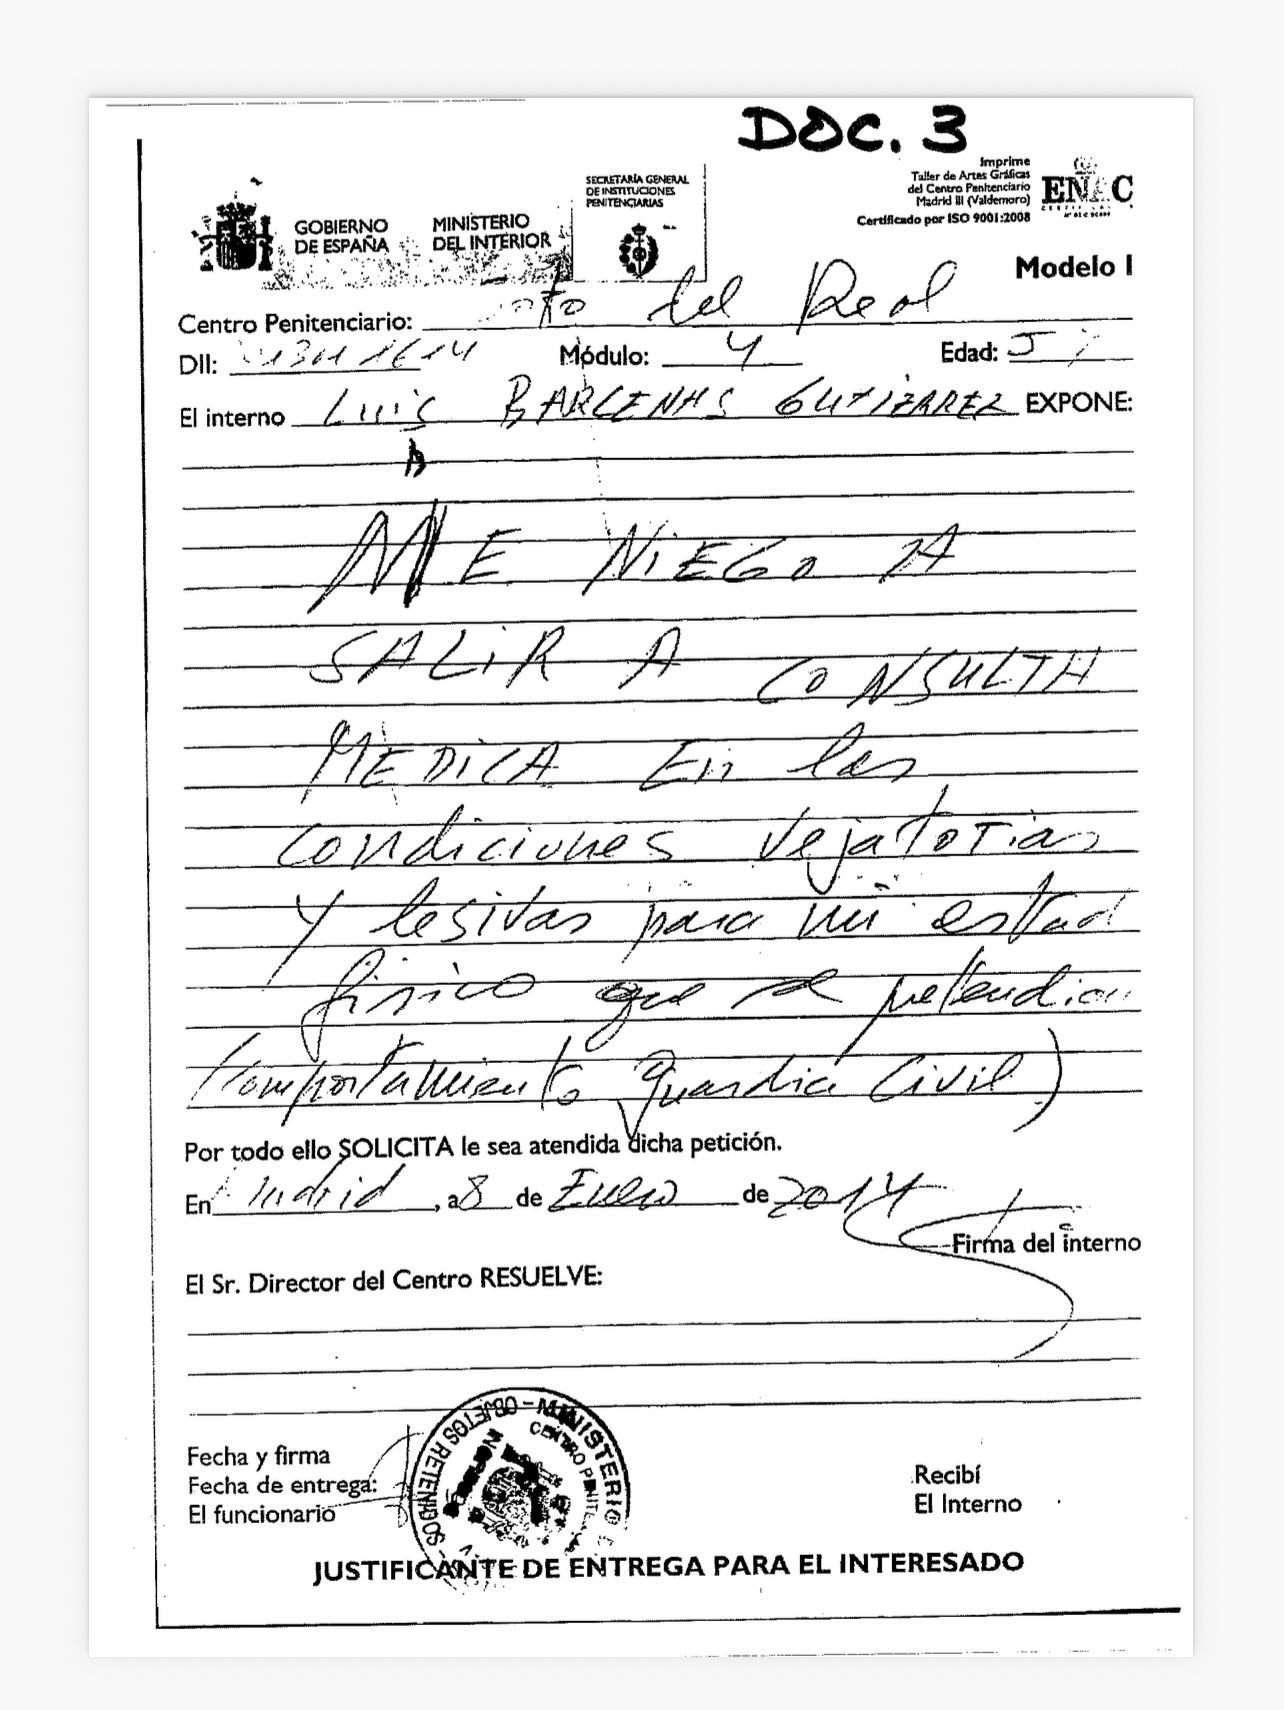 DOC. 3
Imprime
Taller de Artes Gráficas
del Centro Penitenciario
Madrid III (Valdemoro)
Certificado por ISO 9001:2008
ENAC
SECRETARÍA GENERAL
DE INSTITUCIONES
PENITENCIARIAS
GOBIERNO
DE ESPAÑA
MINISTERIO
DEL INTERIOR
Modelo I
Centro Penitenciario: del Real
DII: Módulo: 4 Edad:
El interno LUIS BARCENAS GUTIERREZ EXPONE:
ME NIEGO A
SALIR A CONSULTA
MEDICA En las
condiciones vejatorias
y lesivas para mi estad
físico que se pretendian
(comportamiento guardia Civil)
Por todo ello SOLICITA le sea atendida dicha petición.
En Madrid, a 8 de Enero de 2014
Firma del interno
El Sr. Director del Centro RESUELVE:
Fecha y firma
Fecha de entrega:
El funcionario
OBJETOS RETENIDOS - MINISTERIO
CENTRO
Recibí
El Interno
JUSTIFICANTE DE ENTREGA PARA EL INTERESADO